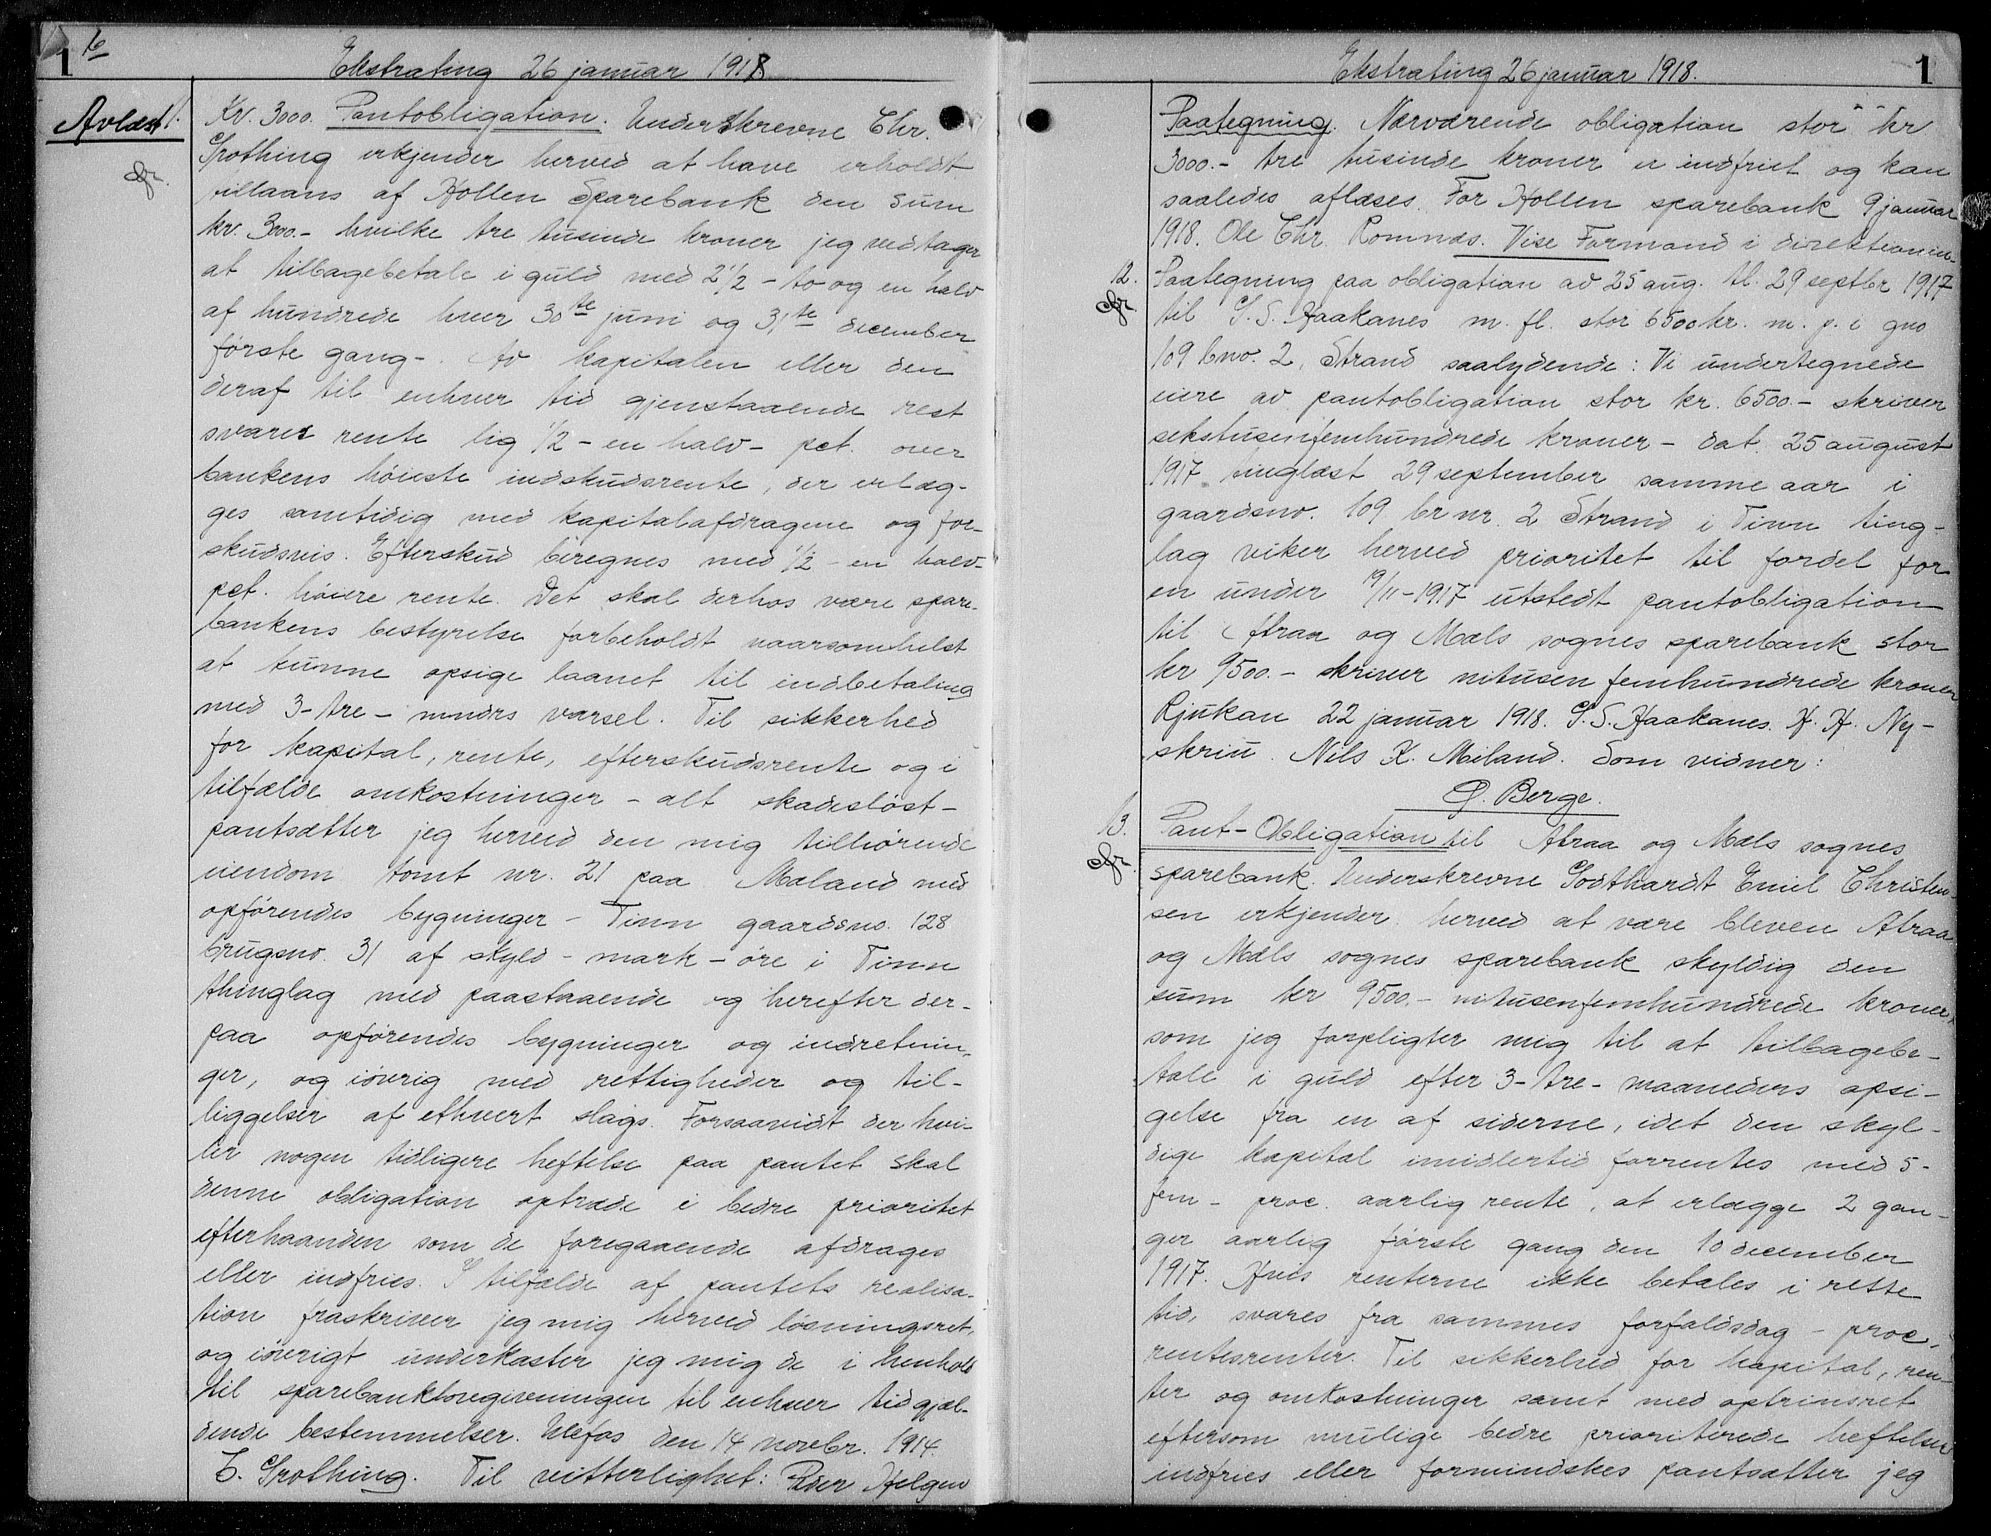 1 b
Ekstrating 26 januar 1918
Avlæst!
cfr.
Kr. 3000. Pantobligation. Underskrevne Chr.
Grothing erkjender herved at have erholdt
tillaans af Hollen Sparebank den sum
kr. 3000.- hvilke tre tusinde kroner jeg vedtager
at tilbagebetale i guld med 2 1/2 - to og en halv
af hundrede hver 30te juni og 31te december
første gang -. Av kapitalen eller den
deraf til enhver tid gjenstaaende rest
svares rente lig 1/2 - en halv - pct. over
bankens høieste indskudsrente, der erlæg-
ges samtidig med kapitalafdragene og for-
skudsvis. Efterskud beregnes med 1/2 - en halv-
pct. høiere rente. Det skal derhos være spare-
bankens bestyrelse forbeholdt naarsomhelst
at kunne opsige laanet til indbetaling
med 3 - tre - mndrs varsel. Til sikkerhed
for kapital, rente, efterskudsrente og i
tilfælde omkostninger - alt skadesløst -
pantsætter jeg herved den mig tilhørende
eiendom tomt nr. 21 paa Mæland med
opførendes bygninger - Tinn gaardsno. 128
brugsno. 31 af skyld - mark - øre i Tinn
thinglag med paastaaende og herefter der-
paa opførendes bygninger og indretnin-
ger, og iøvrig med rettigheder og til-
liggelser af ethvert slags. Forsaavidt der hvi-
ler nogen tidligere heftelse paa pantet skal
denne obligation optræde i bedre prioritet
efterhaanden som de foregaaende afdrages
eller indfries. I tilfælde af pantets realisa-
tion fraskriver jeg mig herved løsningsret,
og iøvrigt underkaster jeg mig de i henhold
til sparebanklovgivningen til enhver tid gjæl-
dende bestemmelser. Ulefos den 14 novbr. 1914
C. Grothing. Til vitterlighet: Peder Helgen
Ekstrating 26 januar 1918.
1
Paategning. Nærværende obligation stor kr
3000.- tre tusinde kroner er indfriet og kan
saaledes aflæses. For Hollen sparebank 9 januar
1918. Ole Chr. Romnæs. Vise Formand i direktionen.
12.
cfr.
Paategning paa obligation av 25 aug. tl. 29 septbr 1917
til G. S. Haakanes m. fl. stor 6500 kr. m. p. i gno
109 bno. 2, Strand saalydende: Vi undertegnede
eiere av pantobligation stor kr. 6500.- skriver
sekstusenfemhundrede kroner - dat. 25 august
1917 tinglæst 29 september samme aar i
gaardsno. 109 br nr. 2 Strand i Tinn ting-
lag viker herved prioritet til fordel for
en under 19/11-1917 utstedt pantobligation
til Atraa og Mæls sognes sparebank stor
kr 9500.- skriver nitusen femhundrede kroner
Rjukan 22 januar 1918. G. S. Haakanes. H. H. Ny-
skriu. Nils K. Miland. Som vidner:
O. Berge.
13.
cfr.
Pant-Obligation til Atraa og Mæls sognes
sparebank. Underskrevne Godthardt Emil Christen-
sen erkjender herved at være bleven Atraa
og Mæls sognes sparebank skyldig den
sum kr 9500.- nitusenfemhundrede kroner,
som jeg forpligter mig til at tilbagebe-
tale i guld efter 3 - tre - maaneders opsi-
gelse fra en af siderne, idet den skyl-
dige kapital imidlertid forrentes med 5 -
fem - proc. aarlig rente, at erlægge 2 gan-
ger aarlig første gang den 10 december
1917. Hvis renterne ikke betales i rette
tid, svares fra sammes forfaldsdag - proc.
rentesrenter. Til sikkerhed for kapital, ren-
ter og omkostninger samt med optrinsret
eftersom mulige bedre prioriterede heftelser
indfries eller formindskes pantsætter jeg